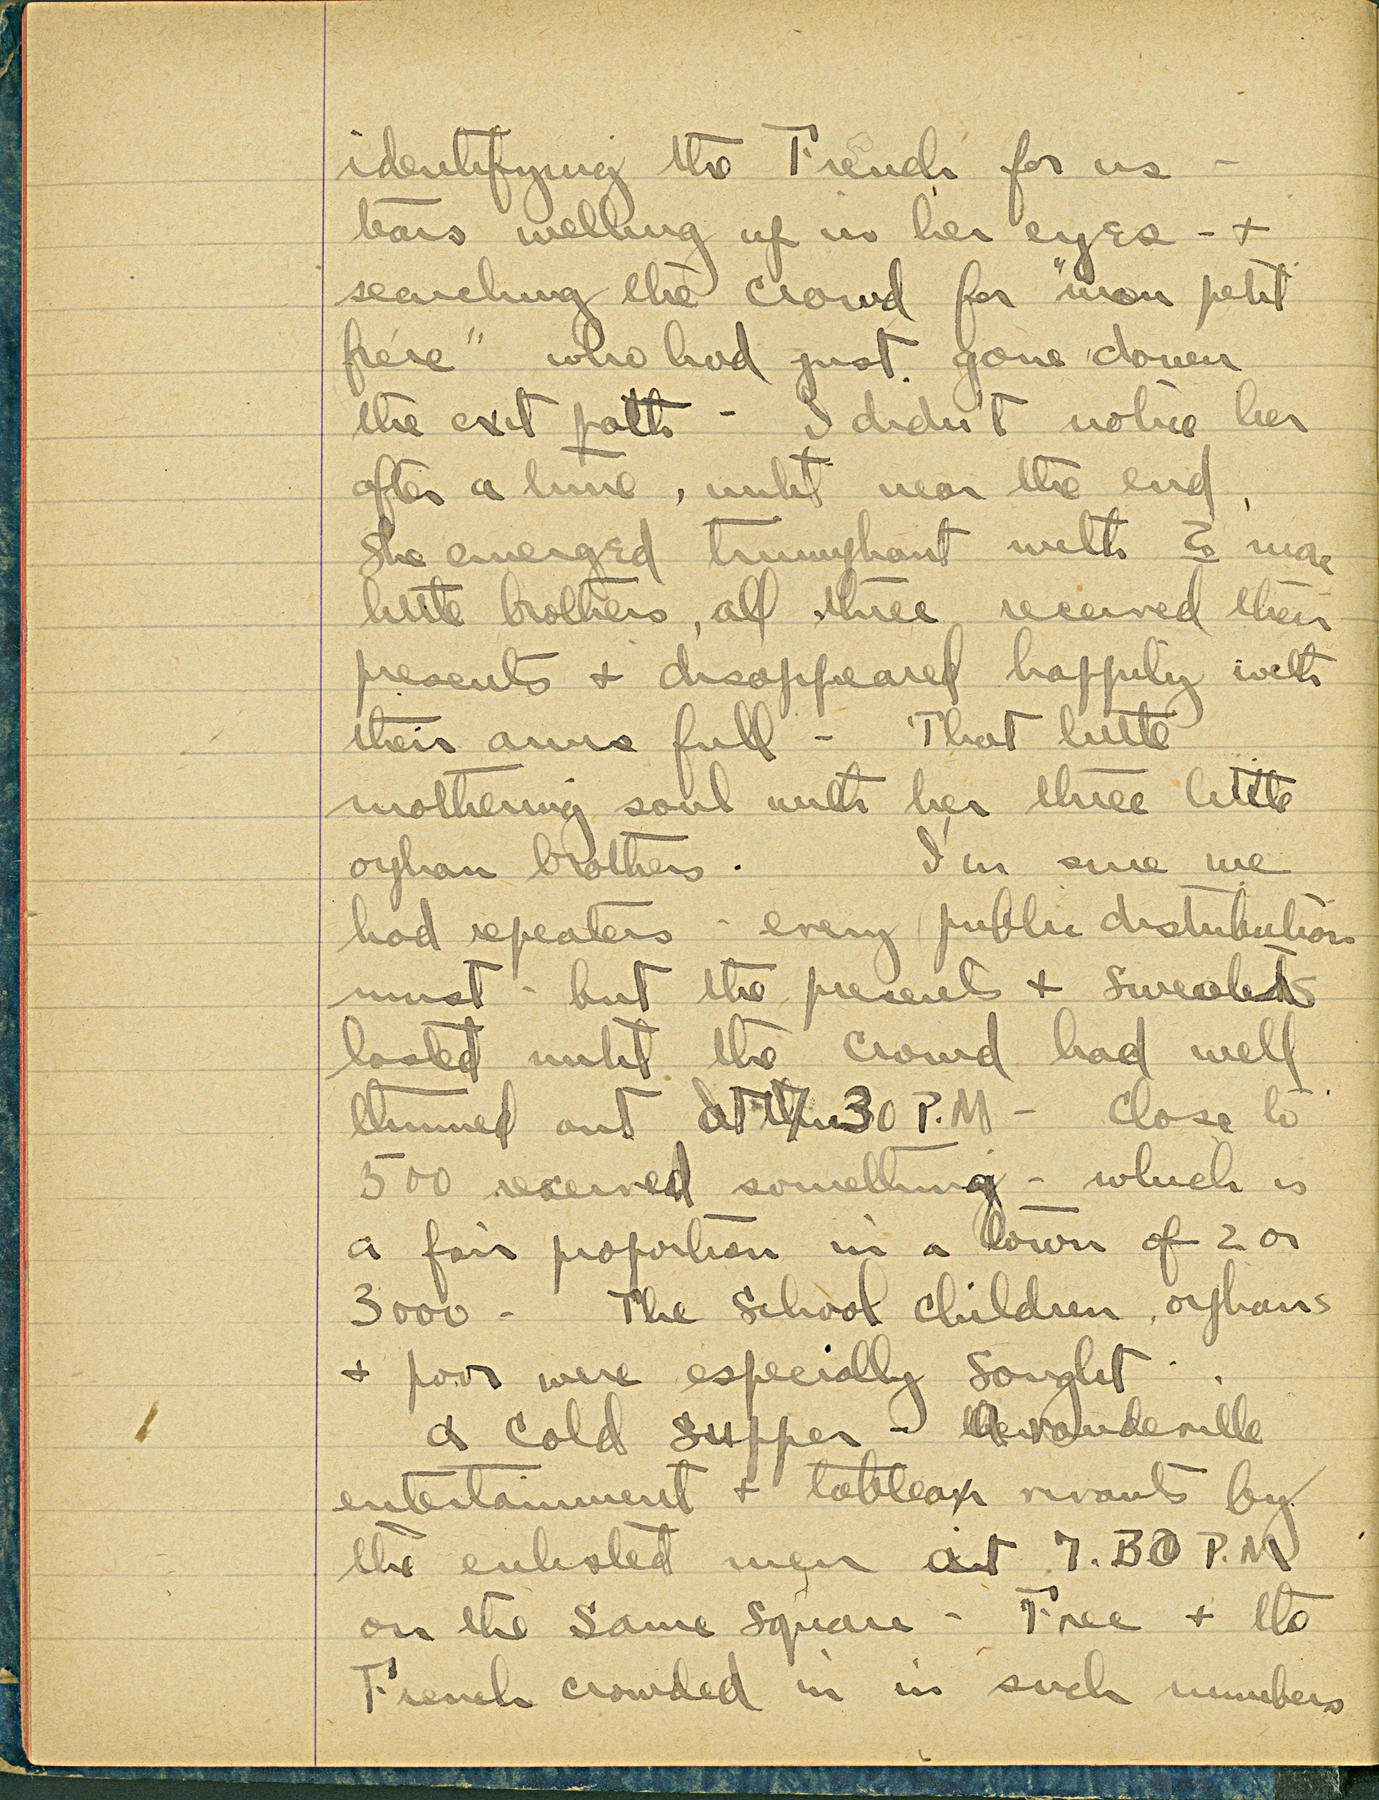 identifying the French for us -
tears welling up in her eyes - +
searching the crowd for "mon petit
frère" who had just gone down
the exit path - I didn't notice her
after a time, until near the end,
she emerged triumphant with 2 more
little brothers, all three received their
presents + disappeared happily with
their arms full - That little
mothering soul with her three little
orphan brothers. I'm sure we
had repeaters - every public distribution
must - but the presents + sweets
lasted until the crowd had well
thinned out at 30 P.M - Close to
500 received something - which is
a fair proportion in a town of 2 or
3000 - The School children, orphans
+ poor were especially sought.
A cold supper - vaudeville
entertainment + tableax vivants by
the enlisted men at 7.30 P.M
on the same square - Free + the
French crowded in in such numbers